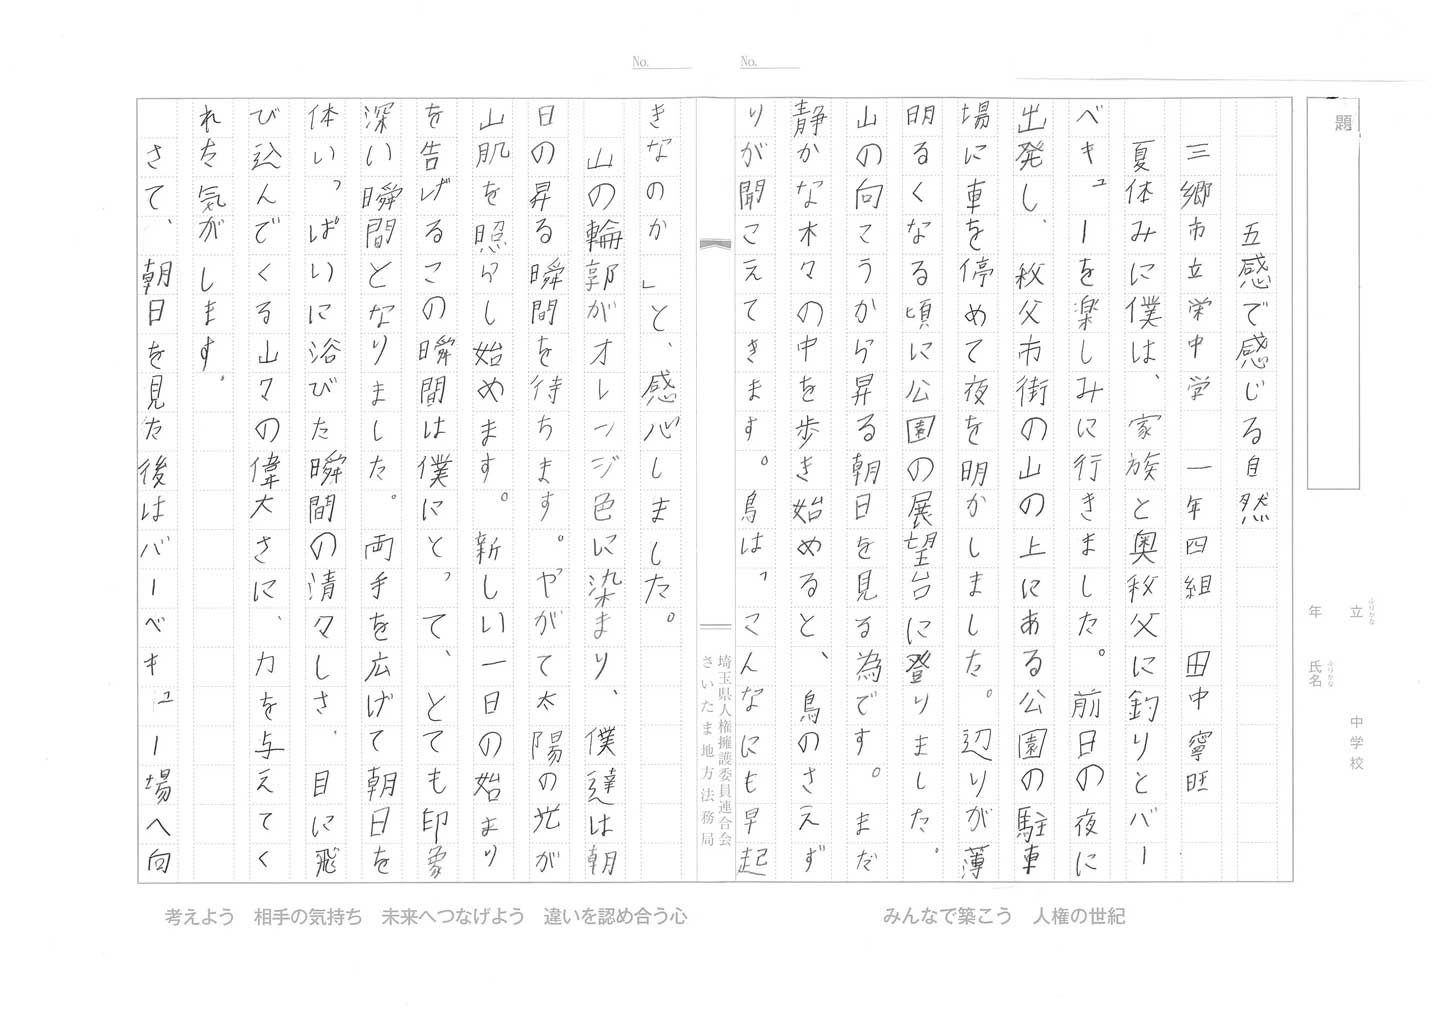 No.
No.
題
立
ふりがな
中学校
年
氏名
ふりがな
五感で感じる自然
三郷市立栄中学 一年四組 田中寧旺
夏休みに僕は、家族と奥秩父に釣りとバー
ベキューを楽しみに行きました。前日の夜に
出発し、秩父市街の山の上にある公園の駐車
場に車を停めて夜を明かしました。辺りが薄
明るくなる頃に公園の展望台に登りました。
山の向こうから昇る朝日を見る為です。まだ
静かな木々の中を歩き始めると、鳥のさえず
りが聞こえてきます。鳥は、「こんなにも早起
きなのか」と、感心しました。
山の輪郭がオレンジ色に染まり、僕達は朝
日の昇る瞬間を待ちます。やがて太陽の光が
山肌を照らし始めます。新しい一日の始まり
を告げるこの瞬間は僕にとって、とても印象
深い瞬間となりました。両手を広げて朝日を
体いっぱいに浴びた瞬間の清々しさ、目に飛
び込んでくる山々の偉大さに、力を与えてく
れた気がします。
さて、朝日を見た後はバーベキュー場へ向
埼玉県人権擁護委員連合会
さいたま地方法務局
みんなで築こう 人権の世紀
考えよう 相手の気持ち 未来へつなげよう 違いを認め合う心